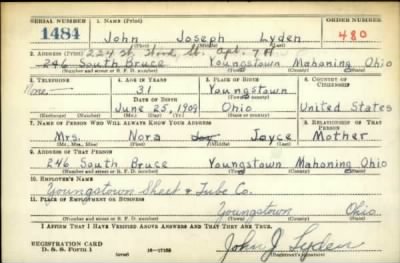 SERIAL NUMBER 1. NAME (Print) ORDER NUMBER
1484 John Joseph Lyden 480
(First) (Middle) (Last)
2. ADDRESS (Print) 224 St. Apt. 7A
246 South Bruce Youngstown Mahoning Ohio
(Number and street or R. F. D. number) (Town) (County) (State)
3. TELEPHONE 4. AGE IN YEARS 5. PLACE OF BIRTH 6. COUNTRY OF CITIZENSHIP
None 31 Youngstown
DATE OF BIRTH (Town or county)
June 25, 1909 Ohio United States
(Exchange) (Number) (Mo.) (Day) (Yr.) (State or country)
7. NAME OF PERSON WHO WILL ALWAYS KNOW YOUR ADDRESS 8. RELATIONSHIP OF THAT PERSON
Mrs. Nora Joyce Mother
(Mr., Mrs., Miss) (First) (Middle) (Last)
9. ADDRESS OF THAT PERSON
246 South Bruce Youngstown Mahoning Ohio
(Number and street or R. F. D. number) (Town) (County) (State)
10. EMPLOYER'S NAME
Youngstown Sheet & Tube Co.
11. PLACE OF EMPLOYMENT OR BUSINESS
Youngstown Ohio
(Number and street or R. F. D. number) (Town) (County) (State)
I AFFIRM THAT I HAVE VERIFIED ABOVE ANSWERS AND THAT THEY ARE TRUE.
REGISTRATION CARD
D. S. S. FORM 1 16—17105 John J Lyden
(Registrant's signature)